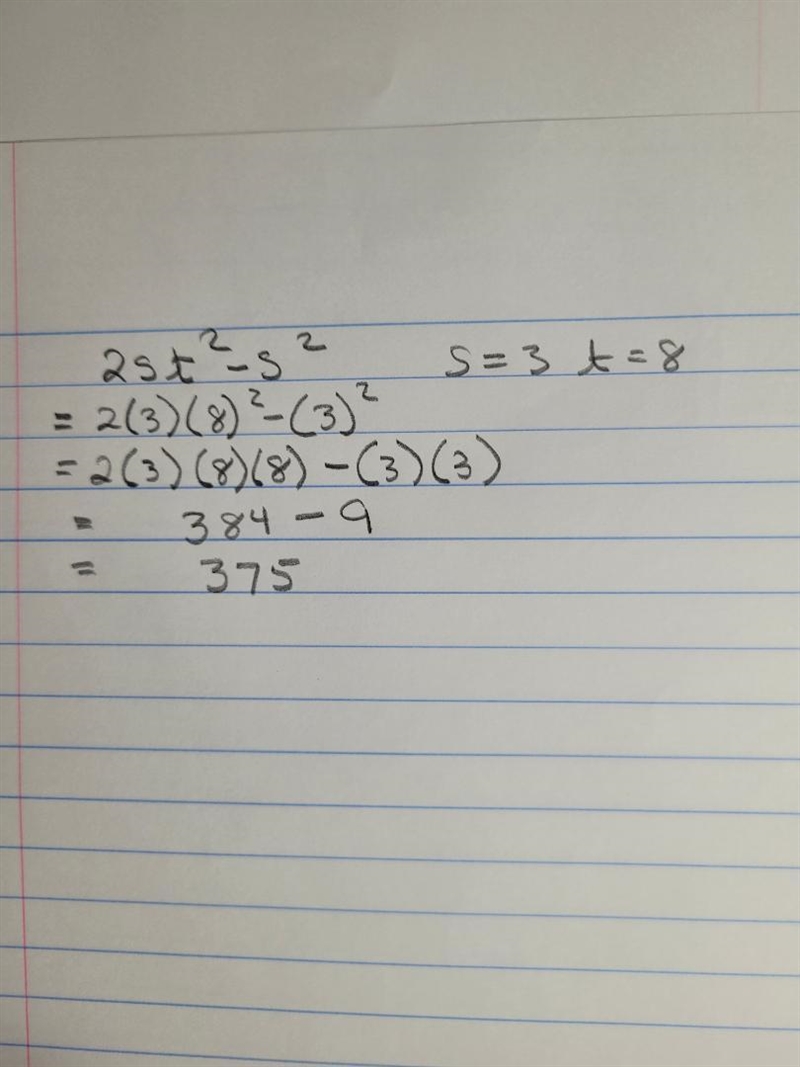 2st² - s² s = 3 t = 8
= 2(3)(8)² - (3)²
= 2(3)(8)(8) - (3)(3)
= 384 - 9
= 375